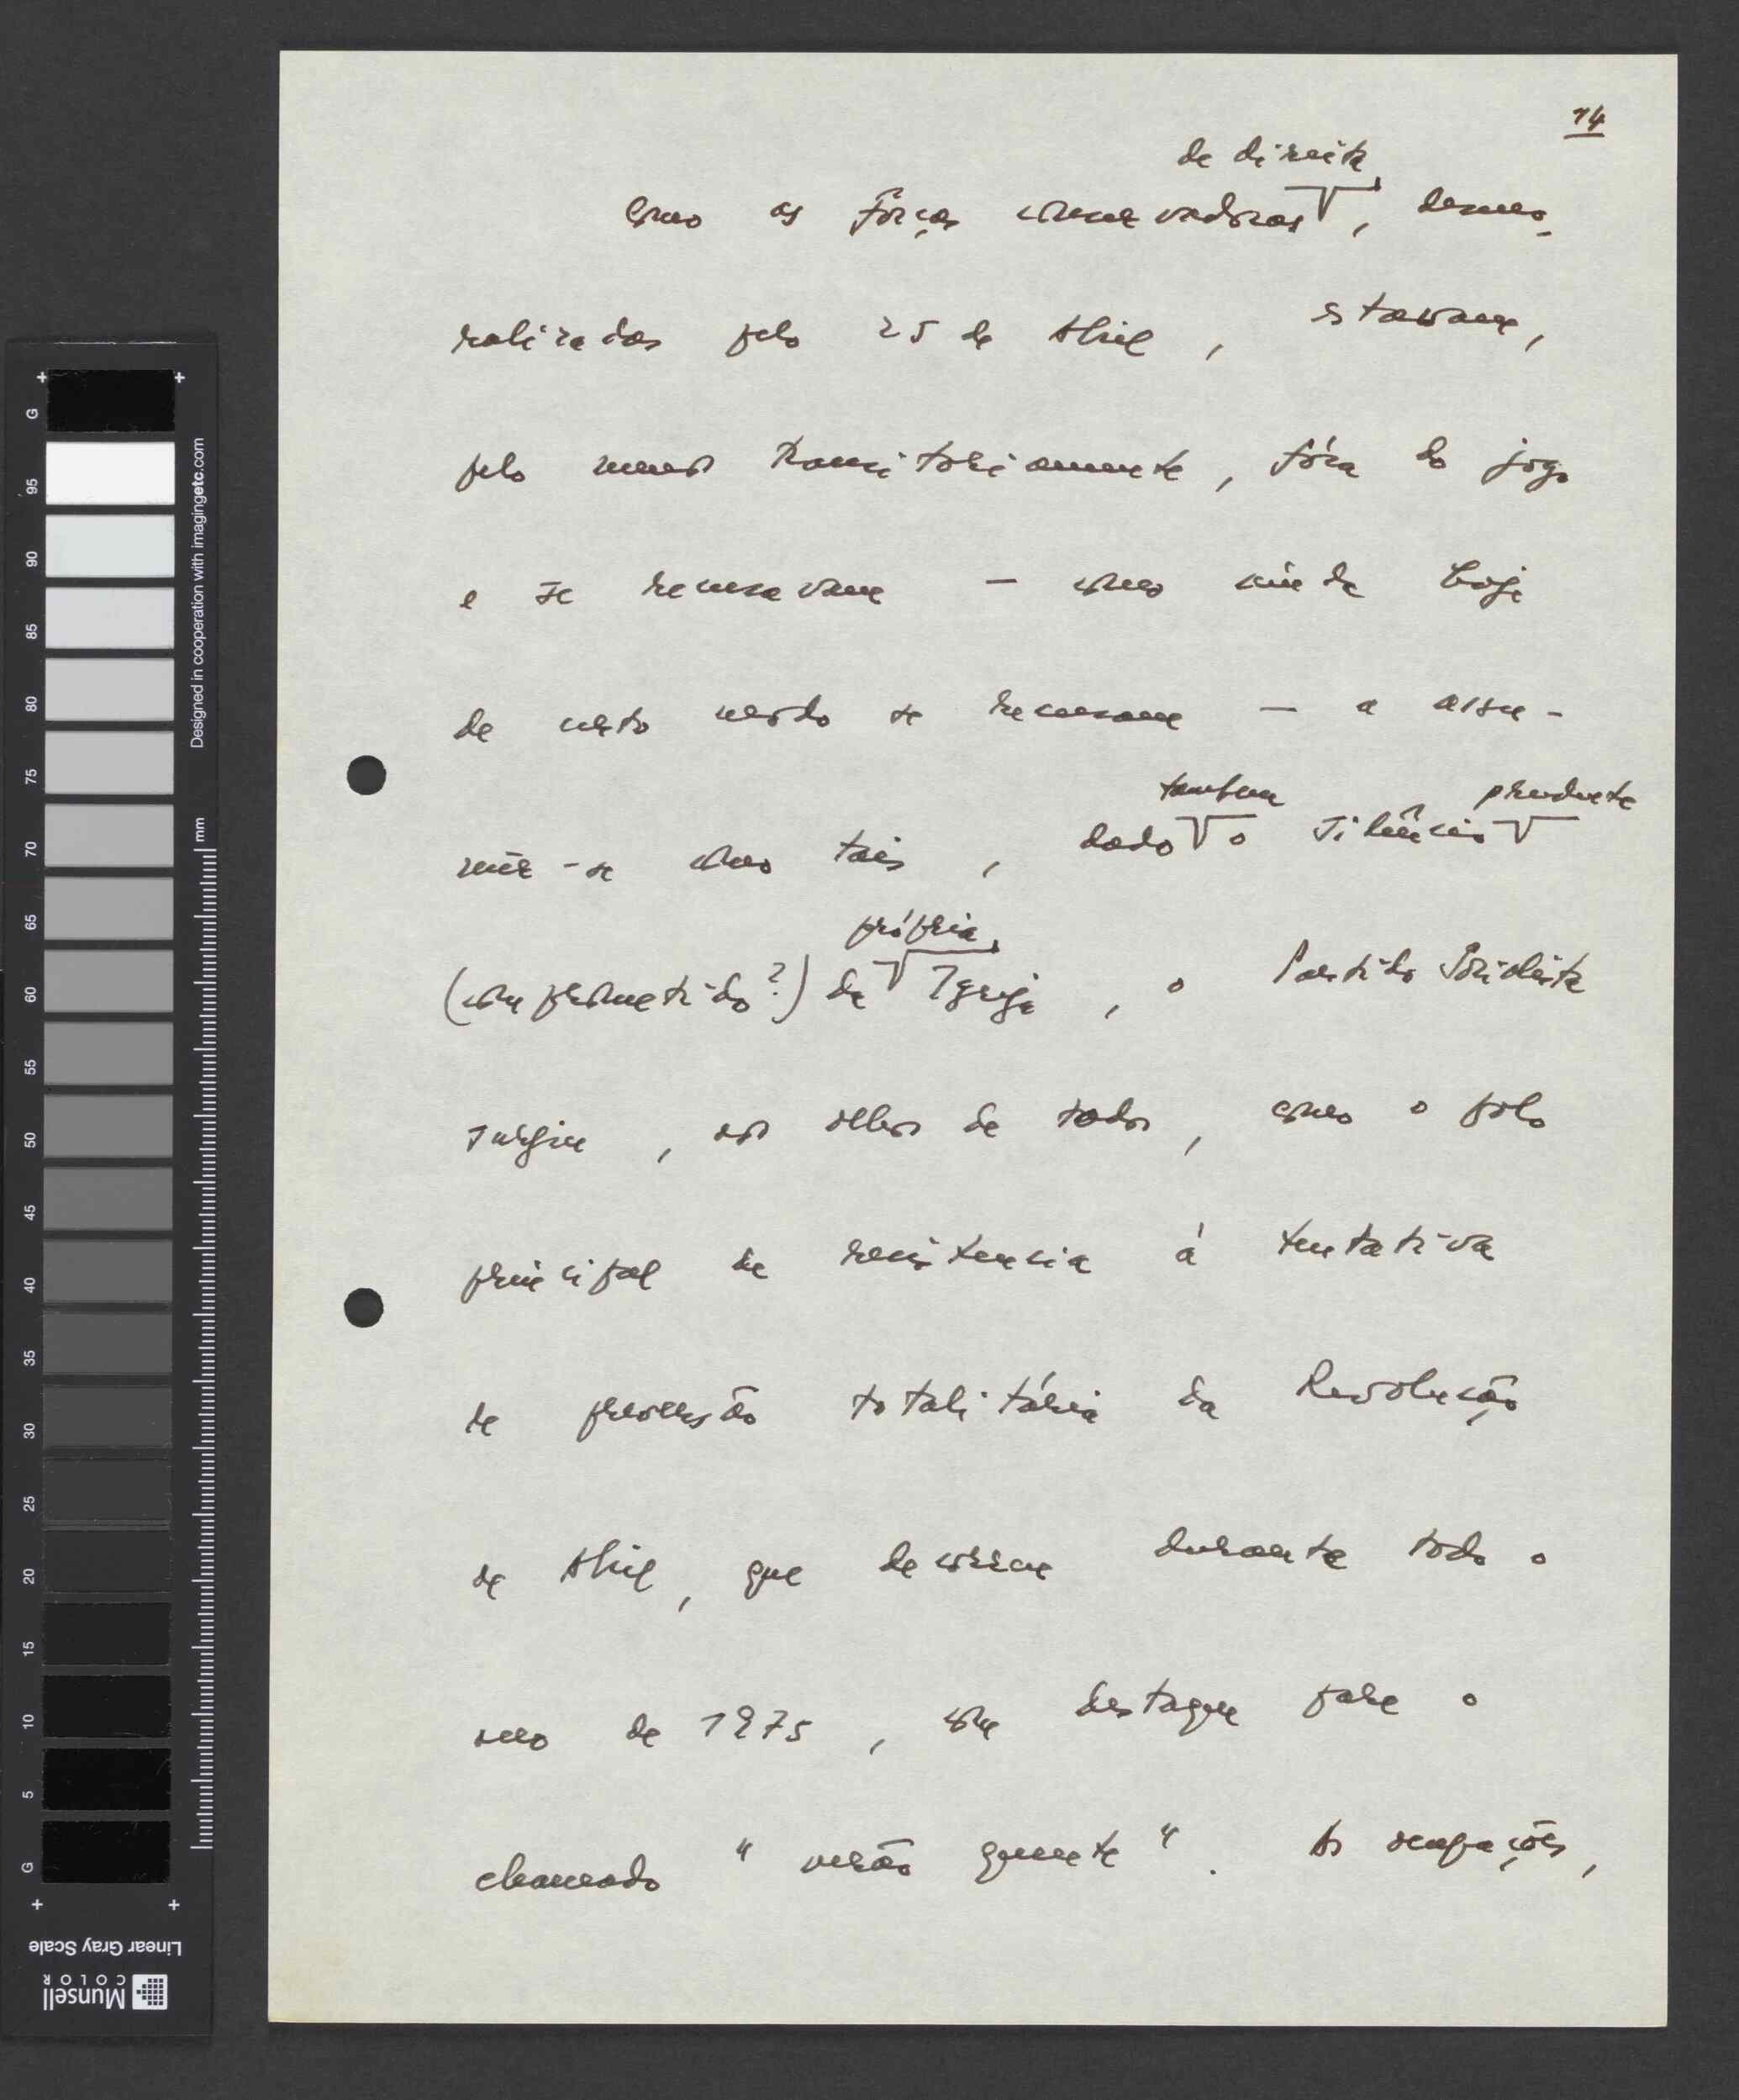 14
de direita
Como as fôrças conservadoras, desmo-
ralizadas pelo 25 de Abril, estavam,
pelo menos transitoriamente, fóra do jogo
e se recusavam — como ainda hoje
de certo modo se recusam — a assu-
tambem prudente
mir-se como tais, dado o silêncio
própria
(comprometido?) da Igreja, o Partido Socialista
surgiu, aos olhos de todos, como o polo
principal de resistencia á tentativa
de perversão totalitária da Revolução
de Abril, que decorreu durante todo o
ano de 1975, com destaque para o
chamado "verão quente". As ocupações,
G
95
90
85
80
75
70
65
60
55
50
45
40
35
30
25
20
15
10
5
G
Designed in cooperation with imagingetc.com
mm
Linear Gray Scale
Munsell
COLOR